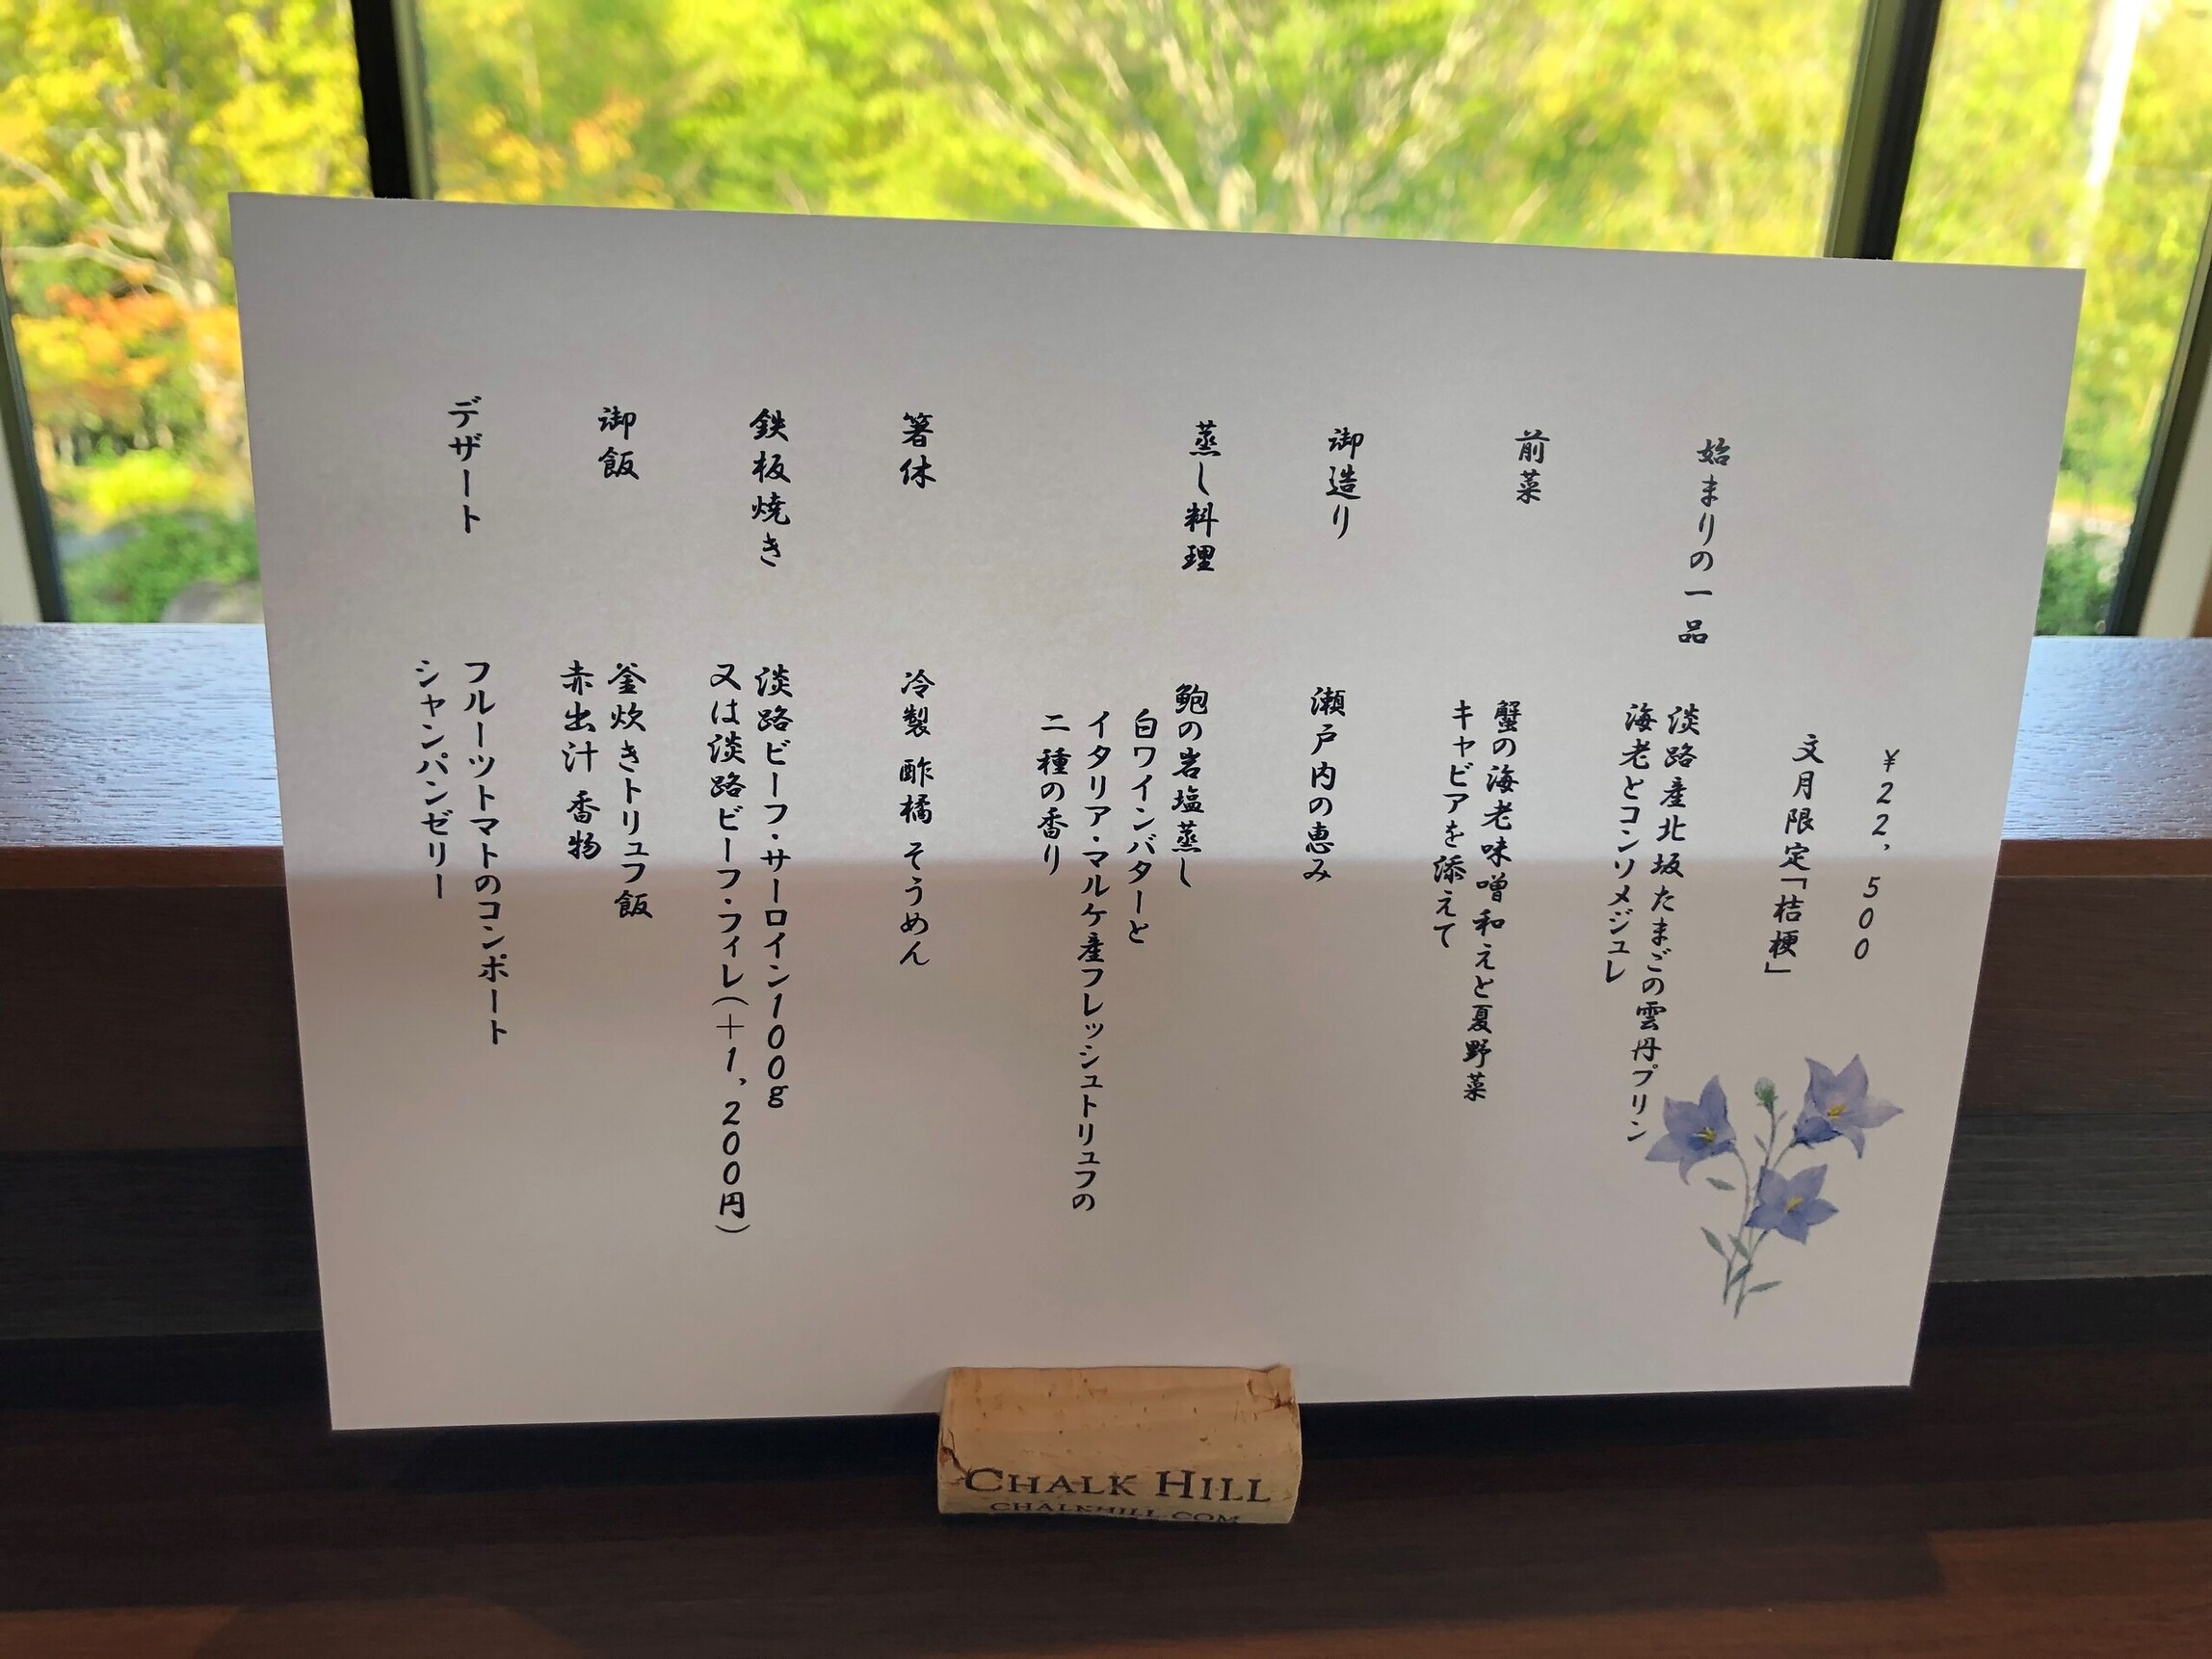 ¥22,500
文月限定「桔梗」
始まりの一品
淡路産北坂たまごの雲丹プリン
海老とコンソメジュレ
前菜
蟹の海老味噌和えと夏野菜
キャビアを添えて
御造り
瀬戸内の恵み
蒸し料理
鮑の岩塩蒸し
白ワインバターと
イタリア・マルケ産フレッシュトリュフの
二種の香り
箸休
冷製 酢橘 そうめん
鉄板焼き
淡路ビーフ・サーロイン100g
又は淡路ビーフ・フィレ(+1,200円)
御飯
釜炊きトリュフ飯
赤出汁 香物
デザート
フルーツトマトのコンポート
シャンパンゼリー
CHALK HILL
CHALKHILL.COM